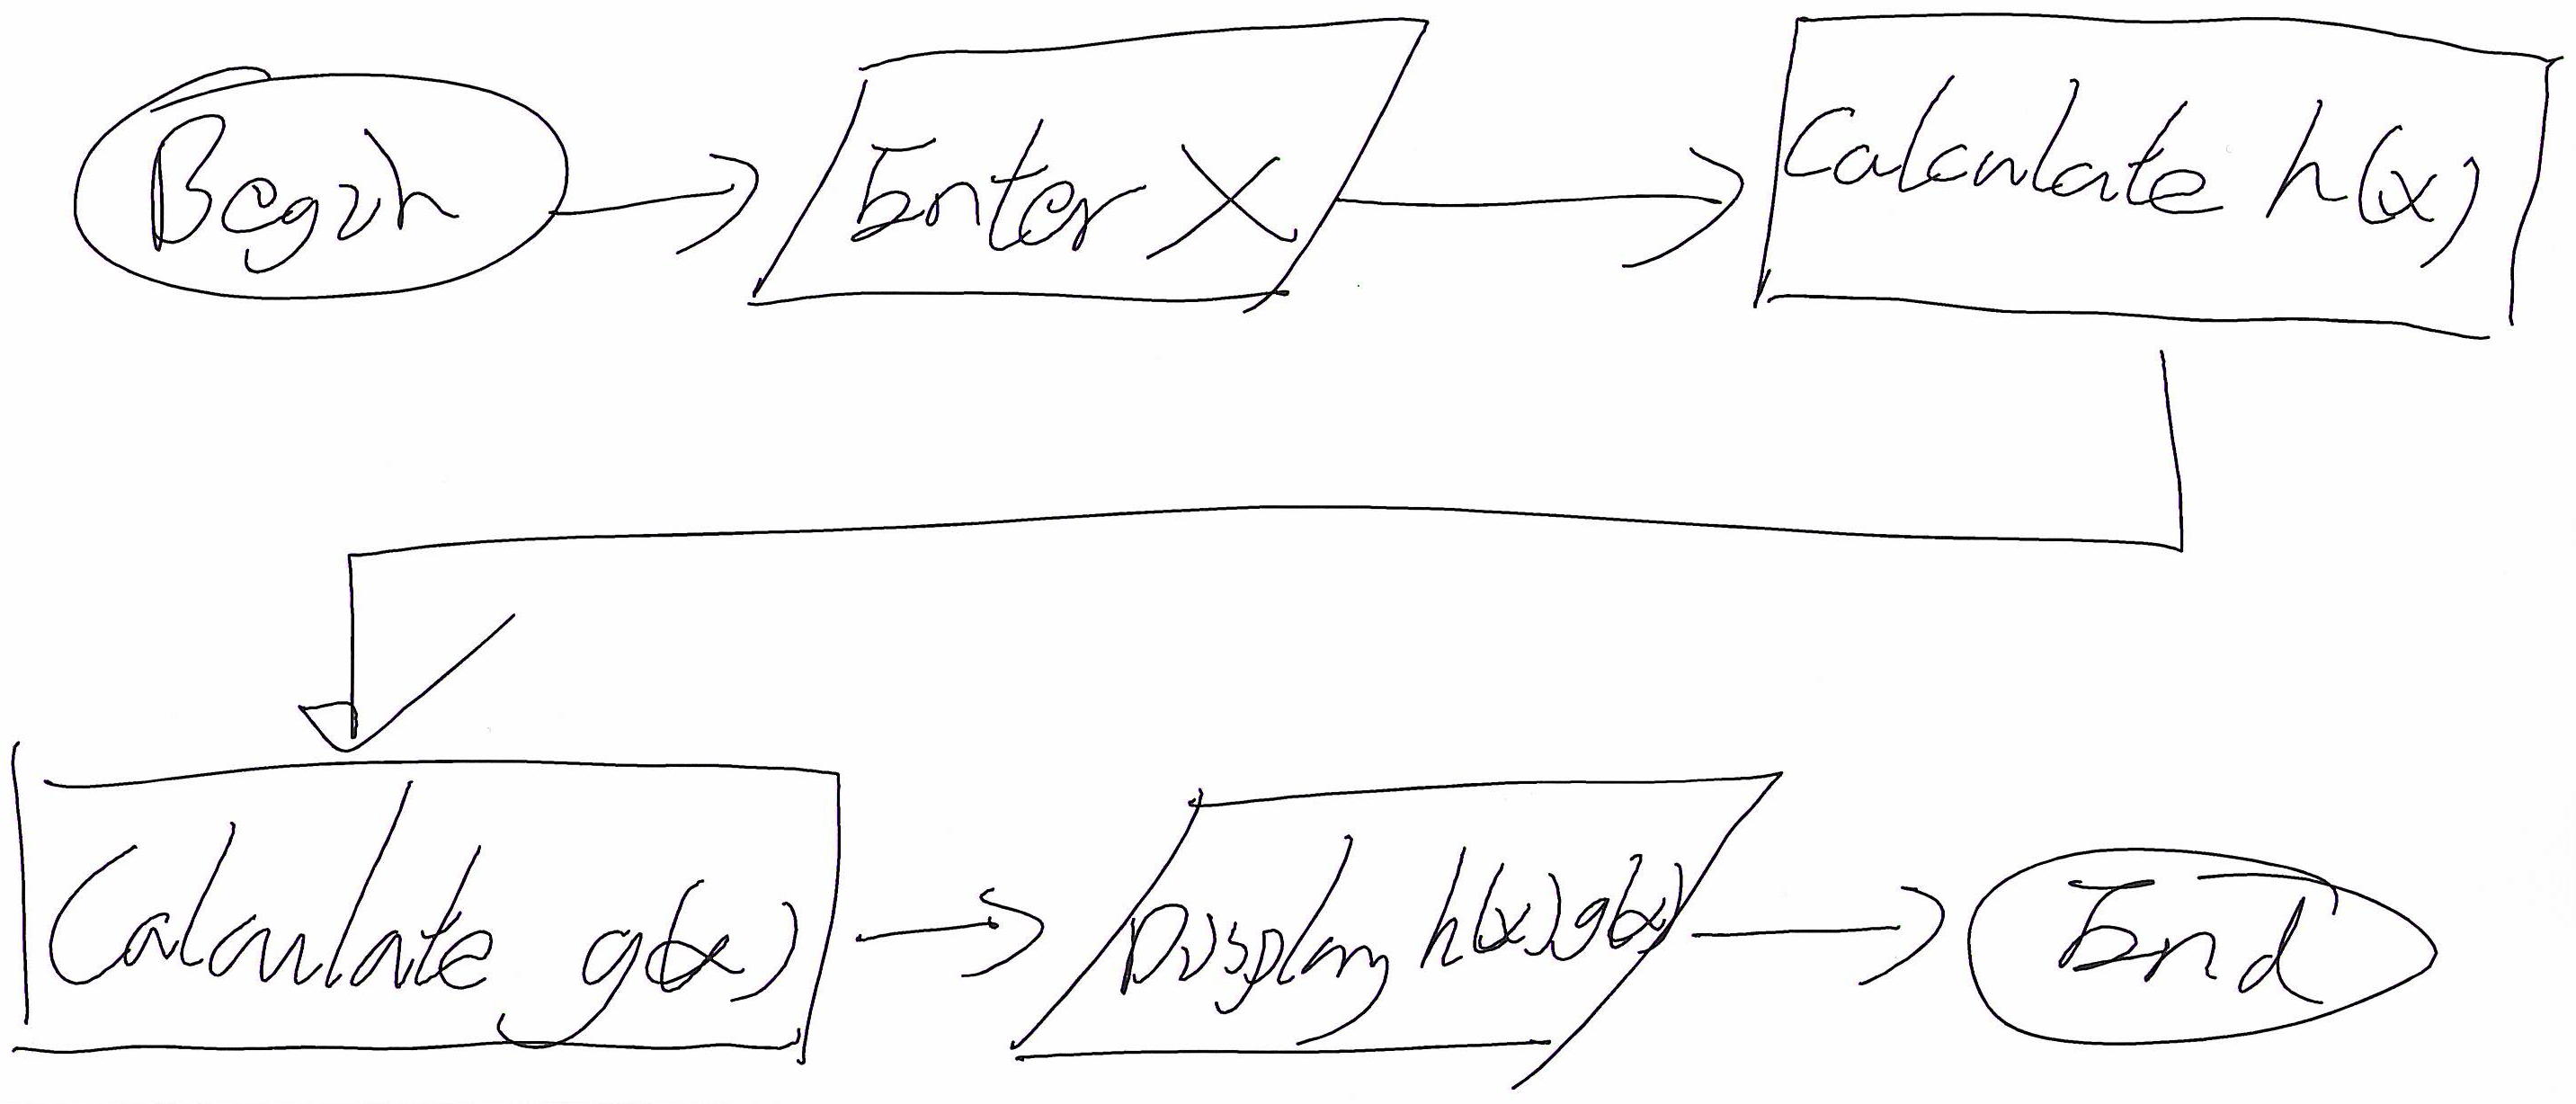 Begin
Enter X
Calculate h(x)
Calculate g(x)
Display h(x), g(x)
End